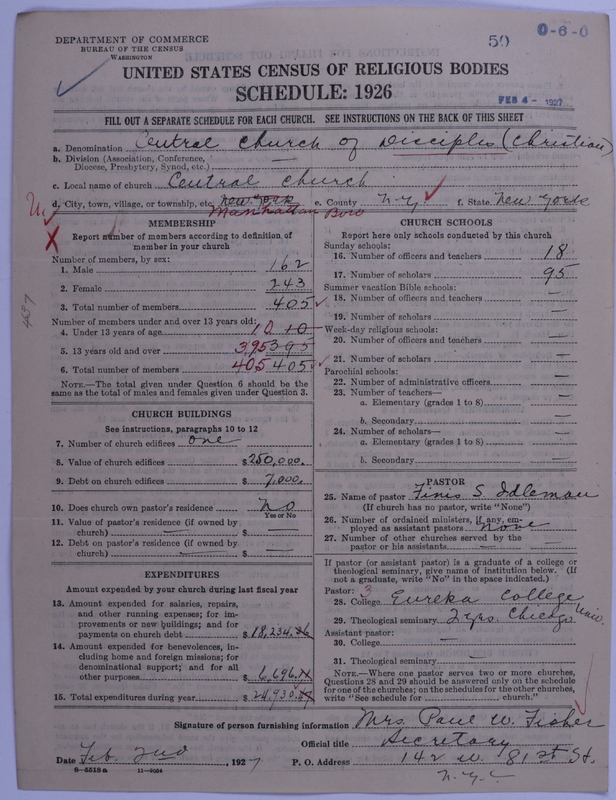 DEPARTMENT OF COMMERCE
BUREAU OF THE CENSUS
WASHINGTON
59
0-6-0
UNITED STATES CENSUS OF RELIGIOUS BODIES
SCHEDULE: 1926
FEB 4 - 1927
FILL OUT A SEPARATE SCHEDULE FOR EACH CHURCH. SEE INSTRUCTIONS ON THE BACK OF THIS SHEET
a. Denomination Central Church of Disciples (Christian)
b. Division (Association, Conference, Diocese, Presbytery, Synod, etc.) —
c. Local name of church Central Church
d. City, town, village, or township, etc. New York e. County N-Y f. State New York
Manhattan Boro
MEMBERSHIP
Report number of members according to definition of
member in your church
Number of members, by sex:
1. Male 162
2. Female 243
3. Total number of members 405
Number of members under and over 13 years old:
4. Under 13 years of age 10 10
5. 13 years old and over 395 395
6. Total number of members 405 405
NOTE.—The total given under Question 6 should be the
same as the total of males and females given under Question 3.
CHURCH BUILDINGS
See instructions, paragraphs 10 to 12
7. Number of church edifices one
8. Value of church edifices $250,000.
9. Debt on church edifices $7,000.
10. Does church own pastor's residence No
Yes or No
11. Value of pastor's residence (if owned by
church) — $ —
12. Debt on pastor's residence (if owned by
church) — $ —
EXPENDITURES
Amount expended by your church during last fiscal year
13. Amount expended for salaries, repairs,
and other running expenses; for im-
provements or new buildings; and for
payments on church debt $18,234.
14. Amount expended for benevolences, in-
cluding home and foreign missions; for
denominational support; and for all
other purposes $6,696.
15. Total expenditures during year $24,930.
CHURCH SCHOOLS
Report here only schools conducted by this church
Sunday schools:
16. Number of officers and teachers 18
17. Number of scholars 95
Summer vacation Bible schools:
18. Number of officers and teachers —
19. Number of scholars —
Week-day religious schools:
20. Number of officers and teachers —
21. Number of scholars —
Parochial schools:
22. Number of administrative officers —
23. Number of teachers—
a. Elementary (grades 1 to 8) —
b. Secondary —
24. Number of scholars—
a. Elementary (grades 1 to 8) —
b. Secondary —
PASTOR
25. Name of pastor Finis S. Idleman
(If church has no pastor, write "None")
26. Number of ordained ministers, if any, em-
ployed as assistant pastors None
27. Number of other churches served by the
pastor or his assistants —
If pastor (or assistant pastor) is a graduate of a college or
theological seminary, give name of institution below. (If
not a graduate, write "No" in the space indicated.)
Pastor: 3
28. College Eureka College
29. Theological seminary 2 yrs. Chicago Univ.
Assistant pastor:
30. College —
31. Theological seminary —
NOTE.—Where one pastor serves two or more churches,
Questions 28 and 29 should be answered only on the schedule
for one of the churches; on the schedules for the other churches,
write "See schedule for church."
Signature of person furnishing information Mrs. Paul W. Fisher
Official title Secretary
Date Feb. 2nd, 1927 P. O. Address 142 W. 81st St.
N.Y.C.
8-5518a 11-9054